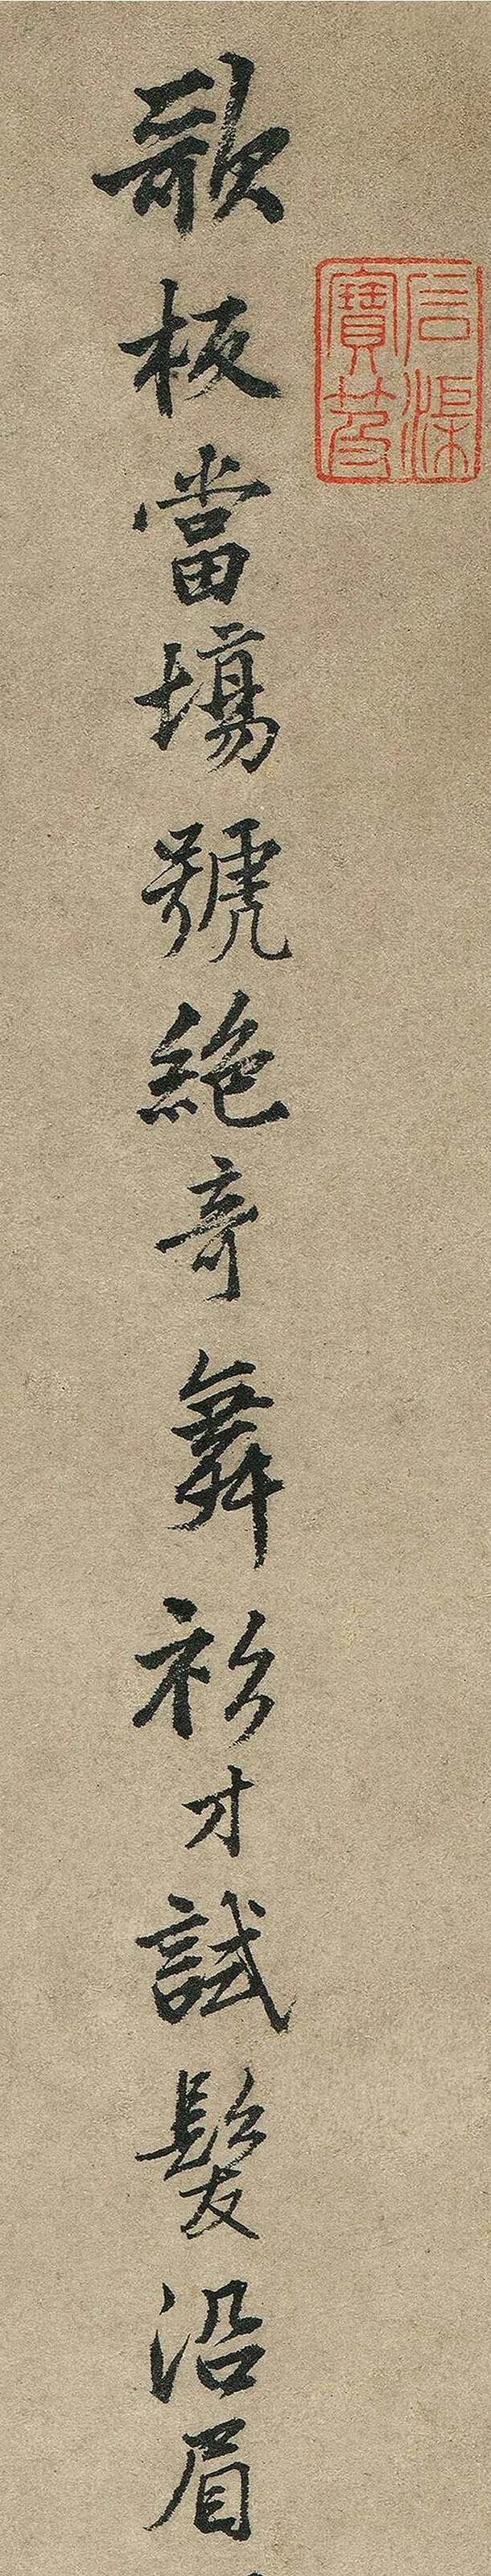 信渠寶笈
歌板當場號絶奇舞衫才試髮沿眉